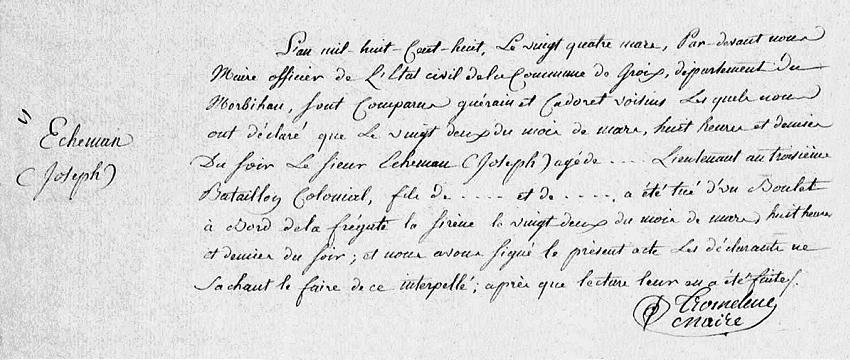 Echeman
(Joseph)
L'an mil-huit-Cent-huit, Le vingt quatre mars, Par-devant nous
Maire officier de L'Etat civil de la Commune de Groix, département du
Morbihan, sont Comparus guérain et Cadoret voisins Lesquels nous
ont déclaré que Le vingt deux du mois de mars, huit heures et demies
Du soir Le sieur Echeman (Joseph) agé de .... Lieutenant au troisième
Bataillon Colonial, fils de ..... et de ..... a été tué d'un Boulet
à Bord de la frégate la sirène le vingt deux du mois de mars huit heures
et demies du soir ; et nous avons signé le présent acte Les déclarants ne
Sachant le faire de ce interpellé ; après que lecture leur en a été faite.
Tromeleue
maire